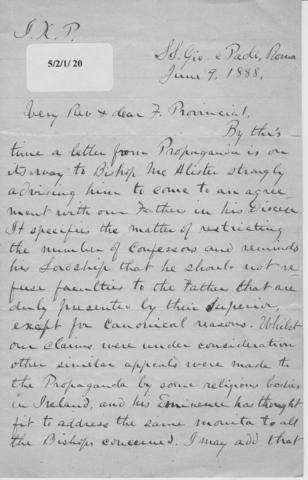 J. X. P.
5/2/1/20
SS. Gio. e Paolo, Roma
June 9. 1888.
Very Rev & dear F. Provincial,
By this
time a letter from Propaganda is on
its way to Bishop McAlister strongly
advising him to come to an agree-
ment with our Fathers in his Diocese
It specifies the matter of restricting
the number of Confessors and reminds
his Lordship that he should not re-
fuse faculties to the Father that are
duly presented by their Superior,
except for Canonical reasons. Whilst
our claims were under consideration
other similar appeals were made to
the Propaganda by some religious bodies
in Ireland, and his Eminence has thought
fit to address the same monita to all
the Bishops concerned. I may add that